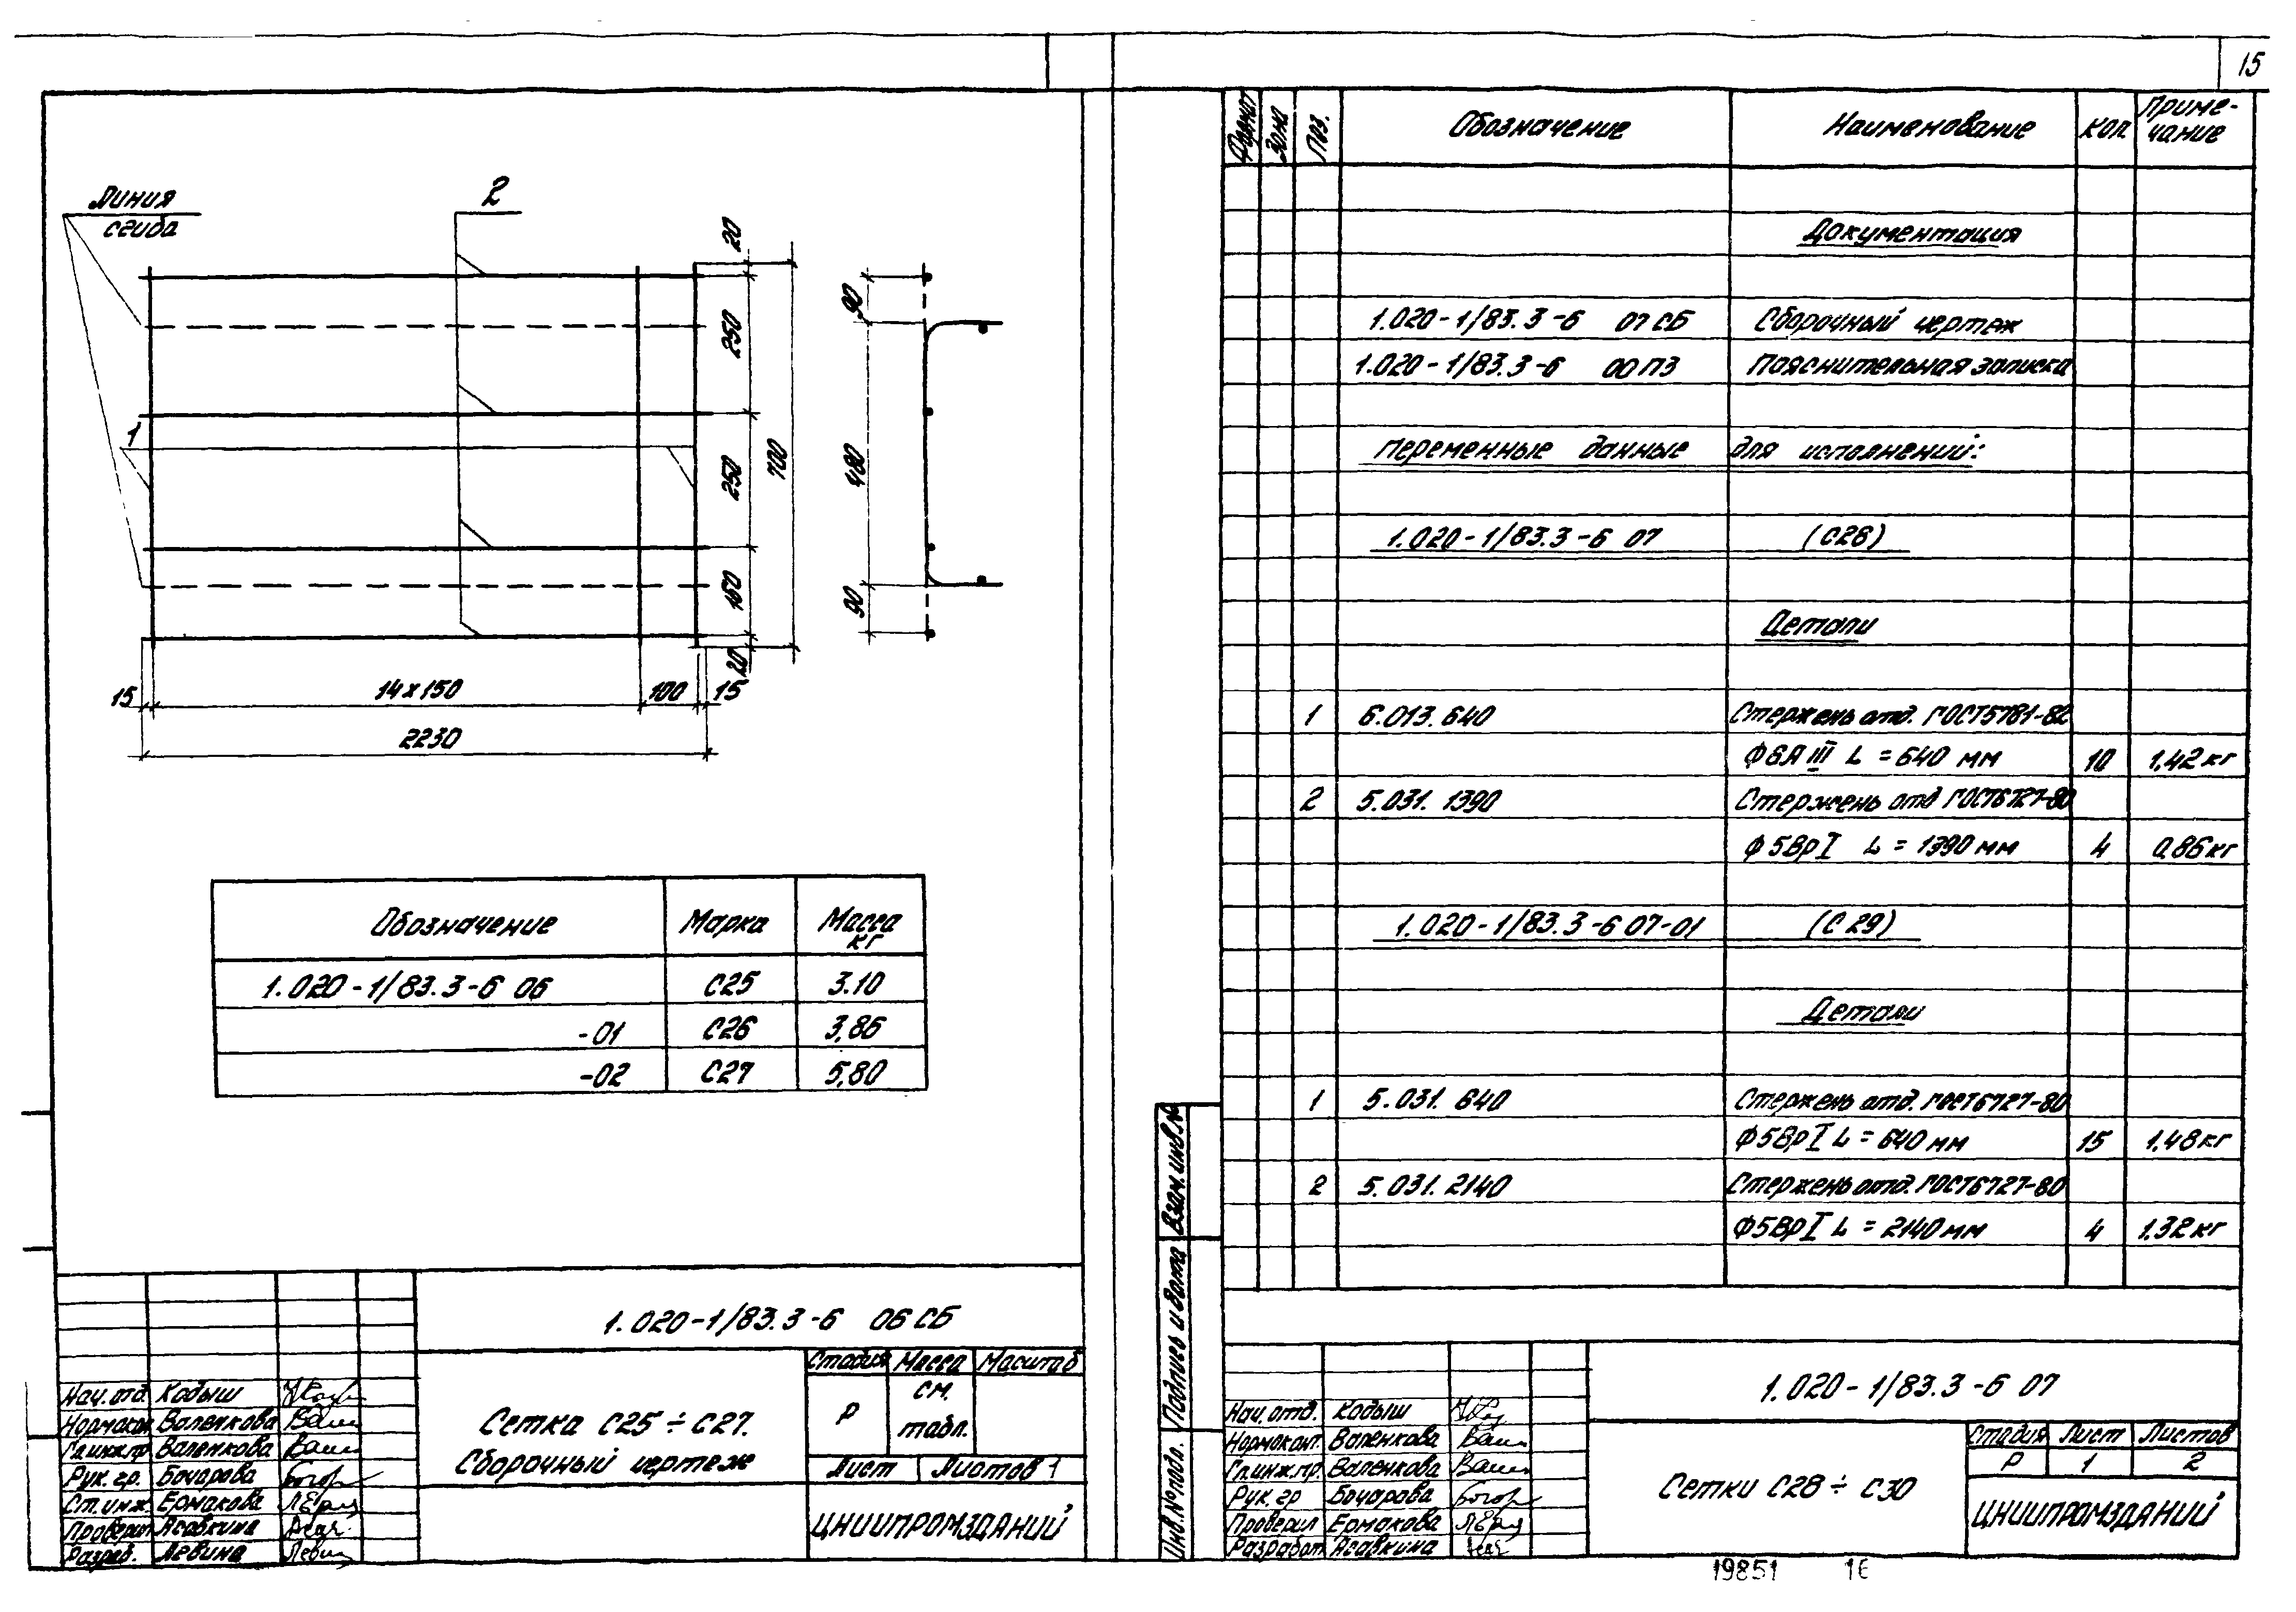 15
Линия
сгиба
2
1
20
250
250
160
20
700
90
480
90
15
14×150
100
15
2230
Обозначение Марка Масса кг
1.020-1/83.3-6 06 С25 3.10
-01 С26 3,86
-02 С27 5,80
1.020-1/83.3-6 06 СБ
Сетка С25÷С27.
Сборочный чертеж
Стадия Масса Масштаб
Р см. табл.
Лист Листов 1
ЦНИИПРОМЗДАНИЙ
Нач.отд. Кодыш
Нормокон. Валенкова
Гл.инж.пр. Валенкова
Рук. гр. Бочарова
Ст.инж. Ермакова
Проверил Асавкина
Разраб. Левина
Формат Зона Поз. Обозначение Наименование Кол. Приме-
чание
Документация
1.020-1/83.3-6 07 СБ Сборочный чертеж
1.020-1/83.3-6 00 ПЗ Пояснительная записка
Переменные данные для исполнений:
1.020-1/83.3-6 07 (С28)
Детали
1 6.013.640 Стержень отд. ГОСТ5781-82
Ф6АIII L=640 мм 10 1,42кг
2 5.031.1390 Стержень отд ГОСТ6727-80
Ф5ВрI L=1390 мм 4 0,86кг
1.020-1/83.3-6 07-01 (С29)
Детали
1 5.031.640 Стержень отд. ГОСТ6727-80
Ф5ВрI L=640 мм 15 1,48кг
2 5.031.2140 Стержень отд. ГОСТ6727-80
Ф5ВрI L=2140 мм 4 1.32кг
Взам.инв.№
Подпись и дата
Инв.№ подл.
1.020-1/83.3-6 07
Сетки С28÷С30
Стадия Лист Листов
Р 1 2
ЦНИИПРОМЗДАНИЙ
Нач.отд. Кодыш
Нормоконт. Валенкова
Гл.инж.пр. Валенкова
Рук. гр Бочарова
Проверил Ермакова
Разработ Асавкина
19851 16